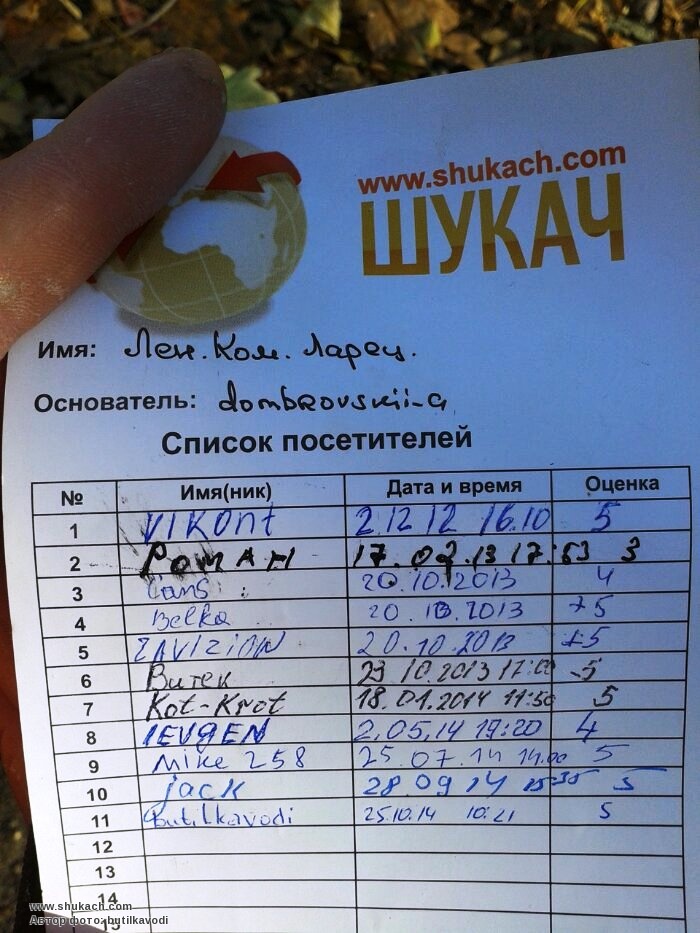 www.shukach.com
ШУКАЧ
Имя: Лен. Ком. Ларец.
Основатель: dombrovskii-a
Список посетителей
№ Имя(ник) Дата и время Оценка
1 VIKont 2.12 12 16.10 5
2 Роман 17.02.13 17:53 3
3 20.10.2013 4
4 Belka 20.10.2013 +5
5 ZAVIZION 20.10.2013 +5
6 Витек 23.10.2013 17:00 -5
7 Kot-Krot 18.01.2014 11:50 5
8 IEVGEN 2.05.14 19:20 4
9 Mike 258 25.07.14 14.00 5
10 jack 28 09 14 15:35 5
11 butilkavodi 25.10.14 10:21 5
12
13
14
15
www.shukach.com
Автор фото: butilkavodi